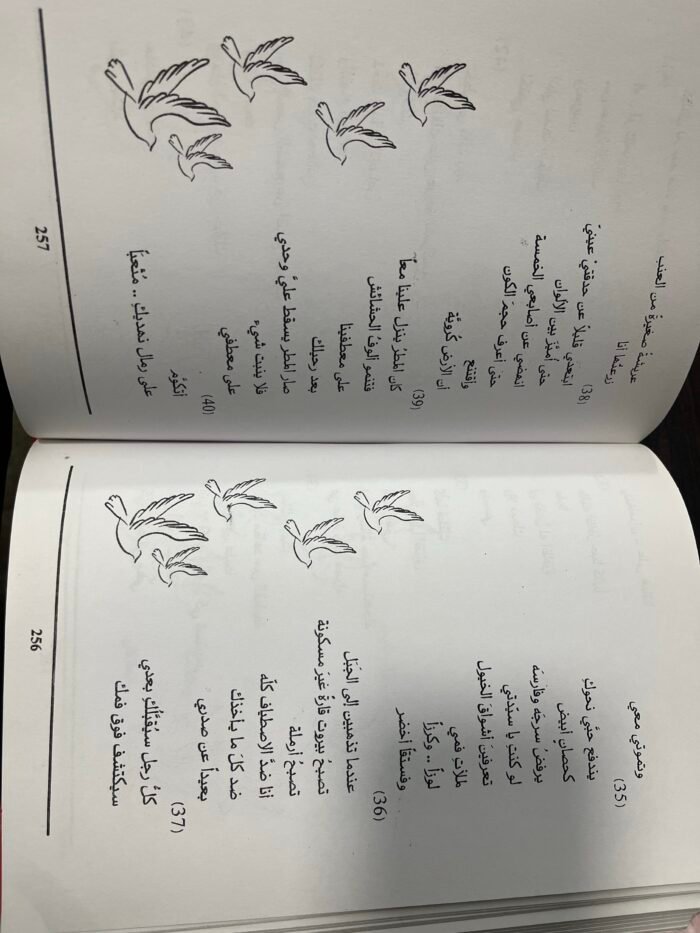 وتموتي معي
(35)
يندفع حُبّي نحوكِ
كحصانٍ أبيض
يرفضُ سرجَهُ وفارسَه
لو كنتِ يا سيّدتي
تعرفينَ أشواقَ الخيول
لملأتِ فمي
لوزاً .. وكرزاً
وفستقاً أخضر
(36)
عندما تذهبين إلى الجَبَل
تصبحُ بيروت قارةً غيرَ مسكونة
تصبحُ أرملة
أنا ضدَّ الاصطيافِ كلّه
ضد كلّ ما يأخذك
بعيداً عن صدري
(37)
كلُّ رجلٍ سيُقبّلُكِ بعدي
سيكتشف فوق فمك
256
عريشةً صغيرةً من العنب
زرعتُها أنا
(38)
ابتعدي قليلاً عن حدقتيْ عينيّ
حتى أُميّزَ بين الألوان
انهضي عن أصابعي الخمسة
حتى أعرف حجمَ الكون
وأقتنع
أن الأرضَ كُرويّة
(39)
كان المطرُ ينزل علينا معاً
فتنمو ألوفُ الحشائش
على معطفينا
بعد رحيلك
صار المطر يسقط عليَّ وحدي
فلا ينبت شيء
على معطفي
(40)
أتكوّمُ
على رمال نهديكِ .. مُتْعباً
257